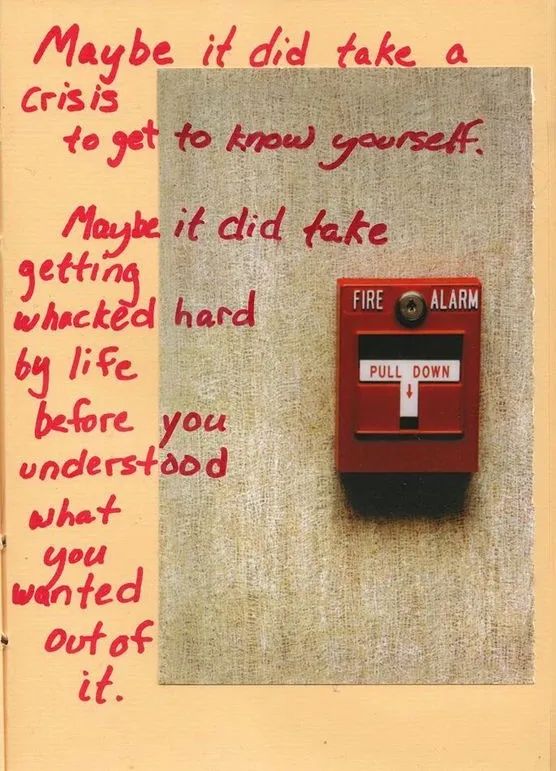 Maybe it did take a
crisis
to get to know yourself.
Maybe it did take
getting
whacked hard
by life
before you
understood
what
you
wanted
out of
it.
FIRE ALARM
PULL DOWN